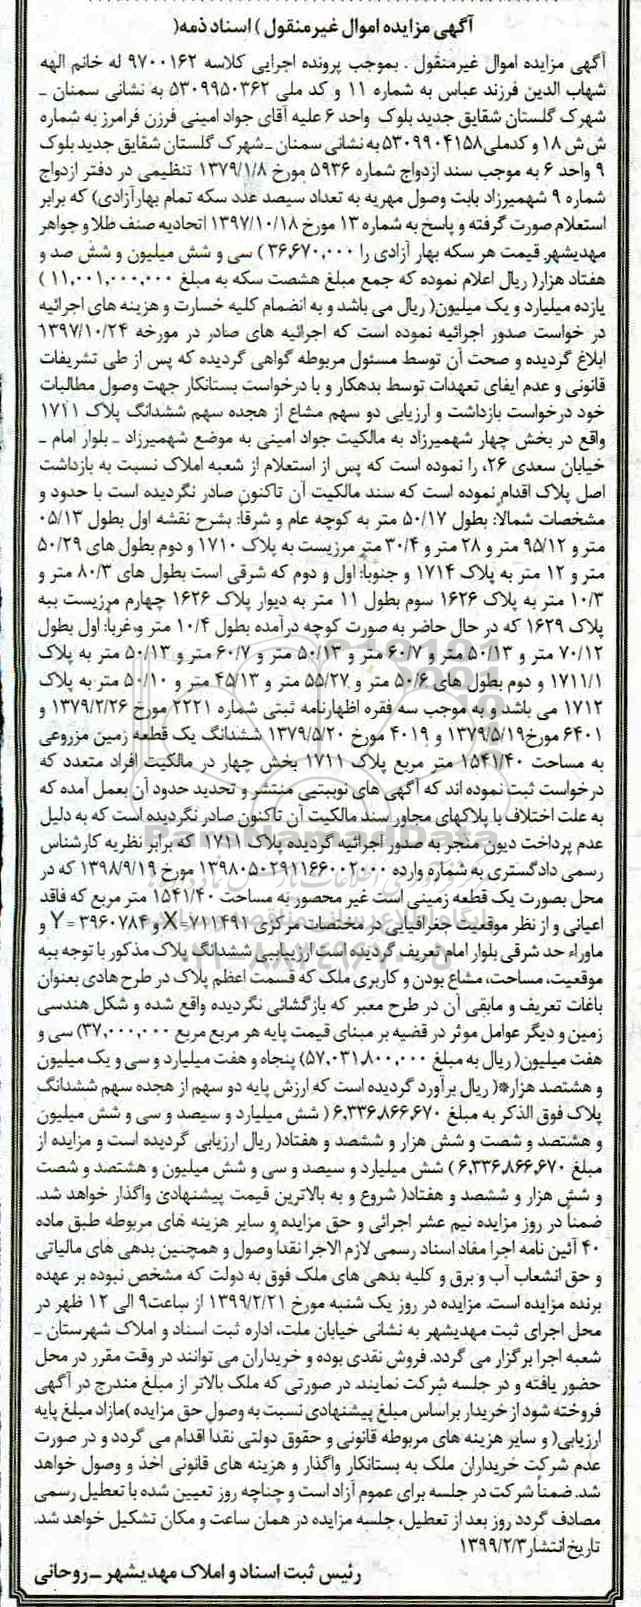 آگهی مزایده اموال غیرمنقول ) اسناد ذمه(
آگهی مزایده اموال غیرمنقول . بموجب پرونده اجرایی کلاسه ۹۷۰۰۱۶۲ له خانم الهه
شهاب الدین فرزند عباس به شماره ۱۱ و کد ملی ۵۳۰۹۹۵۰۳۶۲ به نشانی سمنان ـ
شهرک گلستان شقایق جدید بلوک واحد ۶ علیه آقای جواد امینی فرزن فرامرز به شماره
ش ش ۱۸ و کدملی۵۳۰۹۹۰۴۱۵۸ به نشانی سمنان ـ شهرک گلستان شقایق جدید بلوک
۹ واحد ۶ به موجب سند ازدواج شماره ۵۹۳۶ مورخ ۱۳۷۹/۱/۸ تنظیمی در دفتر ازدواج
شماره ۹ شهمیرزاد بابت وصول مهریه به تعداد سیصد عدد سکه تمام بهارآزادی) که برابر
استعلام صورت گرفته و پاسخ به شماره ۱۳ مورخ ۱۳۹۷/۱۰/۱۸ اتحادیه صنف طلا و جواهر
مهدیشهر قیمت هر سکه بهار آزادی را ۳۶,۶۷۰,۰۰۰ ) سی و شش میلیون و شش صد و
هفتاد هزار( ریال اعلام نموده که جمع مبلغ هشصت سکه به مبلغ ۱۱,۰۰۱,۰۰۰,۰۰۰ )
یازده میلیارد و یک میلیون( ریال می باشد و به انضمام کلیه خسارت و هزینه های اجرائیه
در خواست صدور اجرائیه نموده است که اجرائیه های صادر در مورخه ۱۳۹۷/۱۰/۲۴
ابلاغ گردیده و صحت آن توسط مسئول مربوطه گواهی گردیده که پس از طی تشریفات
قانونی و عدم ایفای تعهدات توسط بدهکار و با درخواست بستانکار جهت وصول مطالبات
خود درخواست بازداشت و ارزیابی دو سهم مشاع از هجده سهم ششدانگ پلاک ۱۷۱۱
واقع در بخش چهار شهمیرزاد به مالکیت جواد امینی به موضع شهمیرزاد ـ بلوار امام ـ
خیابان سعدی ۲۶، را نموده است که پس از استعلام از شعبه املاک نسبت به بازداشت
اصل پلاک اقدام نموده است که سند مالکیت آن تاکنون صادر نگردیده است با حدود و
مشخصات شمالاً: بطول ۵۰/۱۷ متر به کوچه عام و شرقا: بشرح نقشه اول بطول ۰۵/۱۳
متر و ۹۵/۱۲ متر و ۲۸ متر و ۳۰/۴ متر مرزیست به پلاک ۱۷۱۰ و دوم بطول های ۵۰/۲۹
متر و ۱۲ متر به پلاک ۱۷۱۴ و جنوبا: اول و دوم که شرقی است بطول های ۸۰/۳ متر و
۱۰/۳ متر به پلاک ۱۶۲۶ سوم بطول ۱۱ متر به دیوار پلاک ۱۶۲۶ چهارم مرزیست ببه
پلاک ۱۶۲۹ که در حال حاضر به صورت کوچه درآمده بطول ۱۰/۴ متر و،غرباً: اول بطول
۷۰/۱۲ متر و ۵۰/۱۳ متر و ۶۰/۷ متر و ۵۰/۱۳ متر و ۶۰/۷ متر و ۵۰/۱۳ متر به پلاک
۱۷۱۱/۱ و دوم بطول های ۵۰/۶ متر و ۵۵/۲۷ متر و ۴۵/۱۳ متر و ۵۰/۱۰ متر به پلاک
۱۷۱۲ می باشد و به موجب سه فقره اظهارنامه ثبتی شماره ۲۲۲۱ مورخ ۱۳۷۹/۲/۲۶ و
۶۴۰۱ مورخ۱۳۷۹/۵/۱۹ و ۴۰۱۹ مورخ ۱۳۷۹/۵/۲۰ ششدانگ یک قطعه زمین مزروعی
به مساحت ۱۵۴۱/۴۰ متر مربع پلاک ۱۷۱۱ بخش چهار در مالکیت افراد متعدد که
درخواست ثبت نموده اند که آگهی های نوبتی منتشر و تحدید حدود آن بعمل آمده که
به علت اختلاف با پلاکهای مجاور سند مالکیت آن تاکنون صادر نگردیده است که به دلیل
عدم پرداخت دیون منجر به صدور اجرائیه گردیده پلاک ۱۷۱۱ که برابر نظریه کارشناس
رسمی دادگستری به شماره وارده ۱۳۹۸۰۵۰۲۹۱۱۶۶۰۰۲۰۰۰ مورخ ۱۳۹۸/۹/۱۹ که در
محل بصورت یک قطعه زمینی است غیر محصور به مساحت ۱۵۴۱/۴۰ متر مربع که فاقد
اعیانی و از نظر موقعیت جغرافیایی در مختصات مرکزی X=۷۱۱۴۹۱ و Y = ۳۹۶۰۷۸۴ و
ماوراء حد شرقی بلوار امام تعریف گردیده است ارزیابی ششدانگ پلاک مذکور با توجه ببه
موقعیت، مساحت، مشاع بودن و کاربری ملک که قسمت اعظم پلاک در طرح هادی بعنوان
باغات تعریف و مابقی آن در طرح معبر که بازگشائی نگردیده واقع شده و شکل هندسی
زمین و دیگر عوامل موثر در قضیه بر مبنای قیمت پایه هر مربع مربع ۳۷,۰۰۰,۰۰۰) سی و
هفت میلیون( ریال به مبلغ ۵۷,۰۳۱,۸۰۰,۰۰۰) پنجاه و هفت میلیارد و سی و یک میلیون
و هشتصد هزار*( ریال برآورد گردیده است که ارزش پایه دو سهم از هجده سهم ششدانگ
پلاک فوق الذکر به مبلغ ۶,۳۳۶,۸۶۶,۶۷۰ ( شش میلیارد و سیصد و سی و شش میلیون
و هشتصد و شصت و شش هزار و ششصد و هفتاد( ریال ارزیابی گردیده است و مزایده از
مبلغ ۶,۳۳۶,۸۶۶,۶۷۰ ) شش میلیارد و سیصد و سی و شش میلیون و هشتصد و شصت
و شش هزار و ششصد و هفتاد( شروع و به بالاترین قیمت پیشنهادی واگذار خواهد شد.
ضمناً در روز مزایده نیم عشر اجرائی و حق مزایده و سایر هزینه های مربوطه طبق ماده
۴۰ آئین نامه اجرا مفاد اسناد رسمی لازم الاجرا نقداً وصول و همچنین بدهی های مالیاتی
و حق انشعاب آب و برق و کلیه بدهی های ملک فوق به دولت که مشخص نبوده بر عهده
برنده مزایده است. مزایده در روز یک شنبه مورخ ۱۳۹۹/۲/۲۱ از ساعت۹ الی ۱۲ ظهر در
محل اجرای ثبت مهدیشهر به نشانی خیابان ملت، اداره ثبت اسناد و املاک شهرستان ـ
شعبه اجرا برگزار می گردد. فروش نقدی بوده و خریداران می توانند در وقت مقرر در محل
حضور یافته و در جلسه شرکت نمایند. در صورتی که ملک بالاتر از مبلغ مندرج در آگهی
فروخته شود از خریدار براساس مبلغ پیشنهادی نسبت به وصول حق مزایده )مازاد مبلغ پایه
ارزیابی( و سایر هزینه های مربوطه قانونی و حقوق دولتی نقداً اقدام می گردد و در صورت
عدم شرکت خریداران ملک به بستانکار واگذار و هزینه های قانونی اخذ و وصول خواهد
شد. ضمناً شرکت در جلسه برای عموم آزاد است و چناچه روز تعیین شده با تعطیل رسمی
مصادف گردد روز بعد از تعطیل، جلسه مزایده در همان ساعت و مکان تشکیل خواهد شد.
تاریخ انتشار ۱۳۹۹/۲/۳
رئیس ثبت اسناد و املاک مهدیشهر ـ روحانی
ParsNamadData